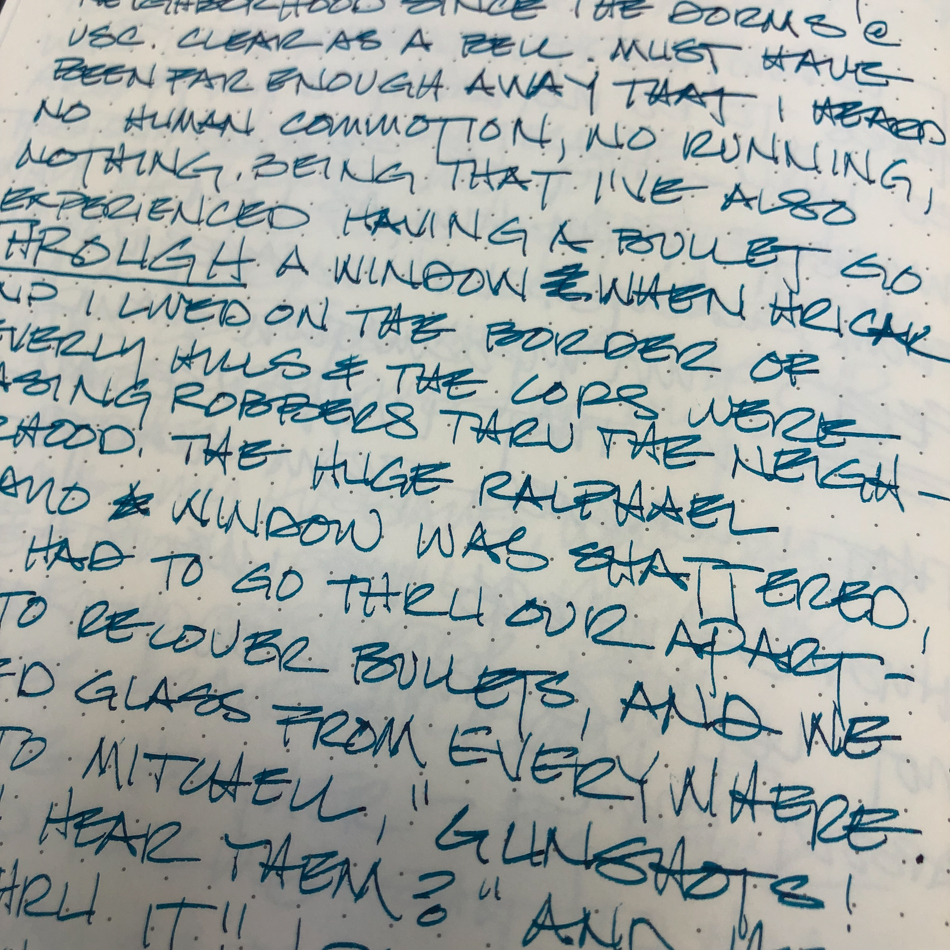 NEIGHBORHOOD SINCE THE DORMS @
USC. CLEAR AS A BELL. MUST HAVE
BEEN FAR ENOUGH AWAY THAT I HEARD
NO HUMAN COMMOTION, NO RUNNING,
NOTHING. BEING THAT I'VE ALSO
EXPERIENCED HAVING A BULLET GO
THROUGH A WINDOW WHEN HRICAK
AND I LIVED ON THE BORDER OF
EVERLY HILLS & THE COPS WERE
ASING ROBBERS THRU THE NEIGH-
RHOOD. THE HUGE RALPHAEL
AND WINDOW WAS SHATTERED,
HAD TO GO THRU OUR APART-
TO RECOVER BULLETS, AND WE
ED GLASS FROM EVERYWHERE.
TO MITCHELL, "GUNSHOTS!
HEAR THEM?" AND
HRU IT"!